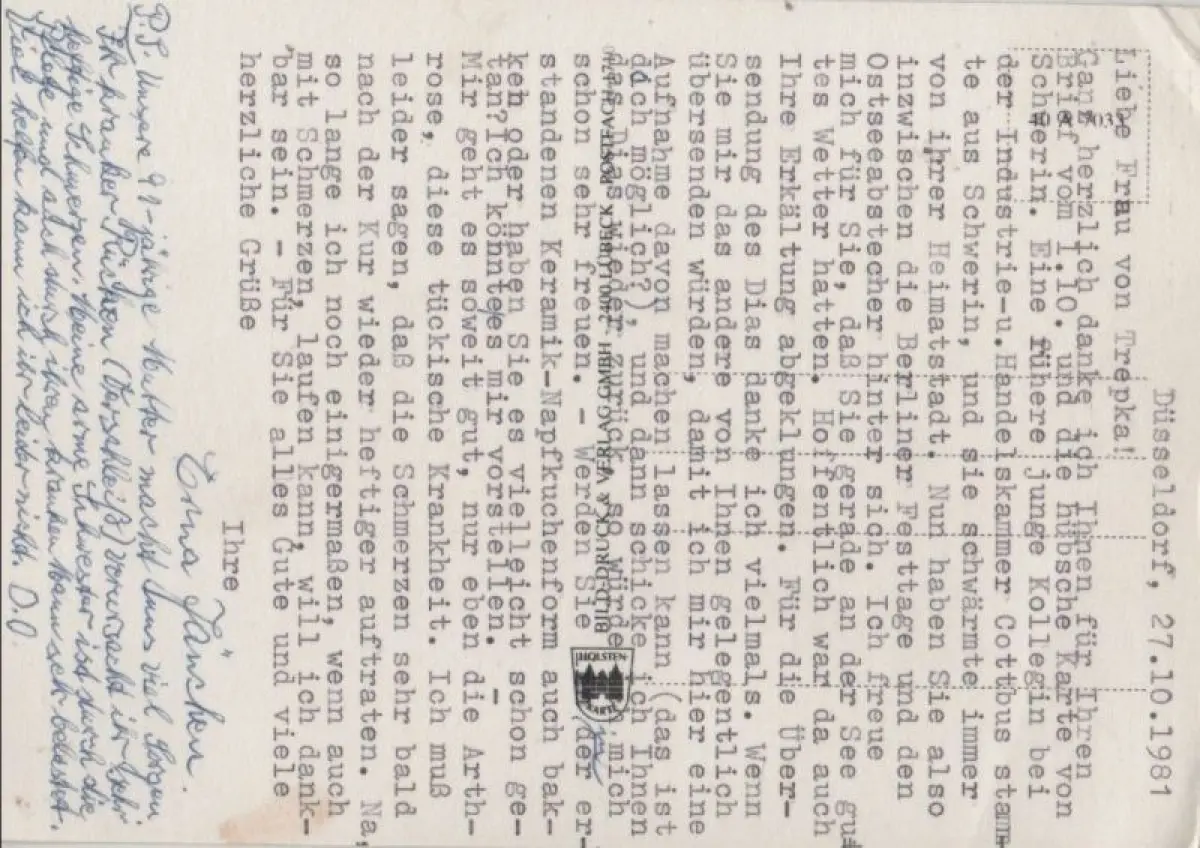 Düsseldorf, 27.10.1981
Liebe Frau von Trepka!
Ganz herzlich danke ich Ihnen für Ihren
Brief vom 1.10. und die hübsche Karte von
Schwerin. Eine führere junge Kollegin bei
der Industrie-u.Handelskammer Cottbus stamm-
te aus Schwerin, und sie schwärmte immer
von ihrer Heimatstadt. Nun haben Sie also
inzwischen die Berliner Festtage und den
Ostseeabstecher hinter sich. Ich freue
mich für Sie, daß Sie gerade an der See gu-
tes Wetter hatten. Hoffentlich war da auch
Ihre Erkältung abgeklungen. Für die Über-
sendung des Dias danke ich vielmals. Wenn
Sie mir das andere von Ihnen gelegentlich
übersenden würden, damit ich mir hier eine
Aufnahme davon machen lassen kann (das ist
doch möglich?), und dann schicke ich Ihnen
das Dias wieder zurück, so würde ich mich
schon sehr freuen. - Werden Sie in der er-
standenen Keramik-Napfkuchenform auch bak-
ken oder haben Sie es vielleicht schon ge-
tan?Ich könnte es mir vorstellen. -
Mir geht es soweit gut, nur eben die Arth-
rose, diese tückische Krankheit. Ich muß
leider sagen, daß die Schmerzen sehr bald
nach der Kur wieder heftiger auftraten. Na,
so lange ich noch einigermaßen, wenn auch
mit Schmerzen, laufen kann, will ich dank-
bar sein. - Für Sie alles Gute und viele
herzliche Grüße
Ihre
Erna Jänchen.
P.S. Unsere 91-jährige Mutter macht uns viel Sorgen
Ihr kranker Rücken (Verschleiß) verursacht ihr sehr
heftige Schmerzen. Meine arme Schwester ist durch die
Pflege und auch durch ihren kranken Mann sehr belastet.
Viel helfen kann ich ihr leider nicht. D.O
BILD-DRUCK u. VERLAG GMBH · 2400 LÜBECK · POSTFACH
HOLSTEN-
KARTE